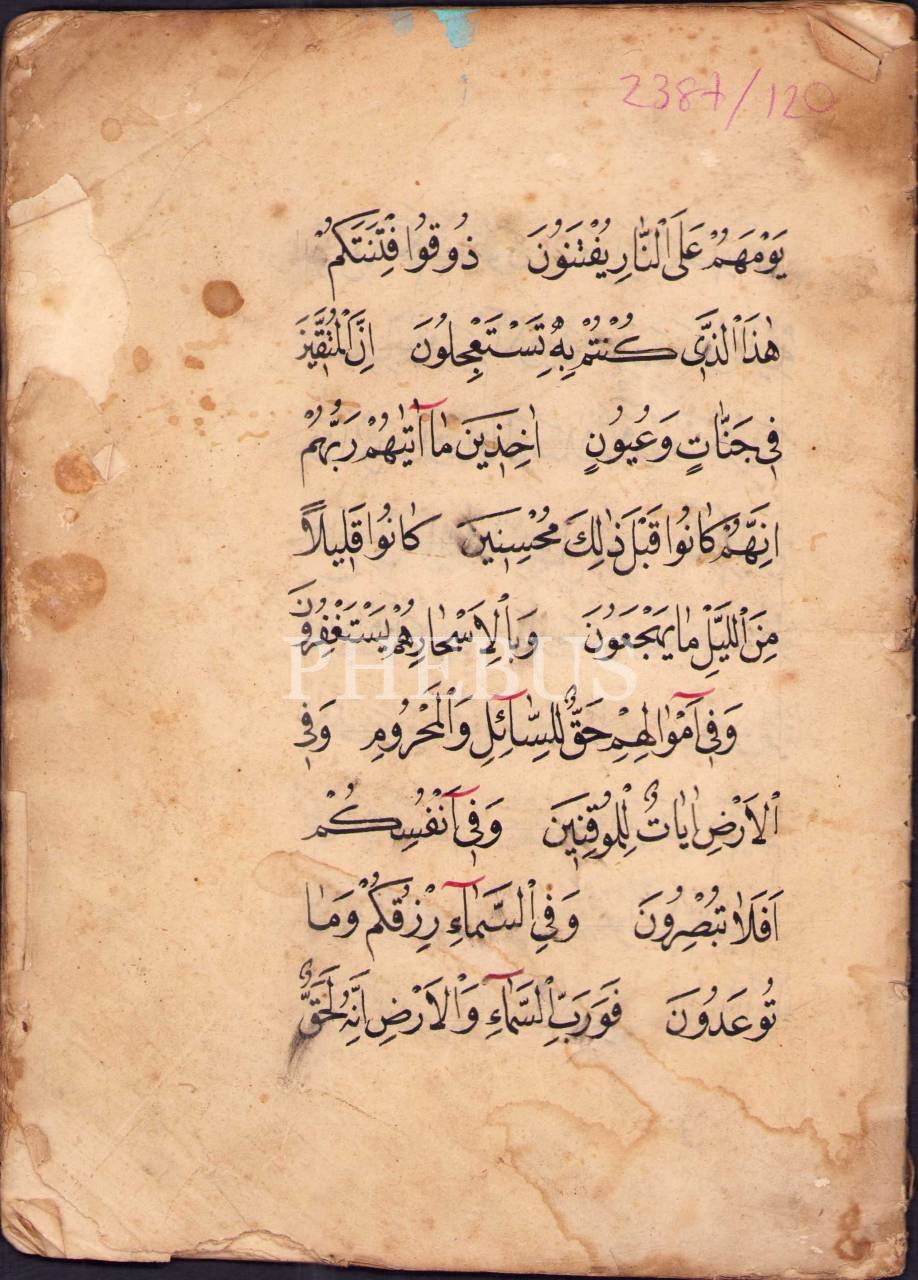 2387/120
يَوْمَهُمْ عَلَى النَّارِ يُفْتَنُونَ ذُوقُوا فِتْنَتَكُمْ
هٰذَا الَّذِى كُنْتُمْ بِهِ تَسْتَعْجِلُونَ اِنَّ الْمُتَّقِينَ
فِى جَنَّاتٍ وَعُيُونٍ اٰخِذِينَ مَٓا اٰتٰيهُمْ رَبُّهُمْ
اِنَّهُمْ كَانُوا قَبْلَ ذٰلِكَ مُحْسِنِينَ كَانُوا قَلِيلاً
مِنَ الَّيْلِ مَا يَهْجَعُونَ وَبِالْاَسْحَارِ هُمْ يَسْتَغْفِرُونَ
PHEBUS
وَفِٓى اَمْوَالِهِمْ حَقٌّ لِلسَّٓائِلِ وَالْمَحْرُومِ وَفِى
الْاَرْضِ اٰيَاتٌ لِلْمُوقِنِينَ وَفِٓى اَنْفُسِكُمْ
اَفَلَا تُبْصِرُونَ وَفِى السَّمَٓاءِ رِزْقُكُمْ وَمَا
تُوعَدُونَ فَوَرَبِّ السَّمَٓاءِ وَالْاَرْضِ اِنَّهُ لَحَقٌّ